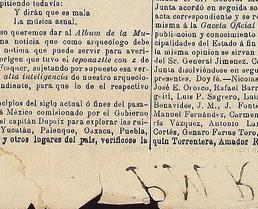 pitiendo todavia:
Y dirán que es mala
La música asnal.
so queremos dar al Album de la Mu-
na noticia que como arqueólogo debe
que puede servir para averi-
orígen que tuvo el teponaztle con z de
oaquer, sujetando por supuesto esa ver-
alta inteligencia de nuestro arqueolo-
endiente, para que le dé el respectivo
cipios del siglo actual ó fines del pasa-
á México comisionado por el Gobierno
el capitan Dupaix para explorar las rui-
Yucatán, Palenque, Oaxaca, Puebla,
y otros lugares del país, verificóse la
Junta acordó en seguida
acta correspondiente y se
misma á la Gaceta Oficial
publicacion y conocimiento
cipalidades del Estado á fin
la misma opinion se sirvan
del Sr. General Jimenez. C
Junta disolviéndose en segu
presentes. Doy fé.—Nicolas
José E. Orozco, Rafael Barr
guiti, Luis P. Segrero, Luis
Benavides, J. M., J. Fonte
Manuel Fernández, Carmen
ría Vázquez, Antonio Lar
Cortés, Genaro Farías Toro,
quin Torrentera, Amador R